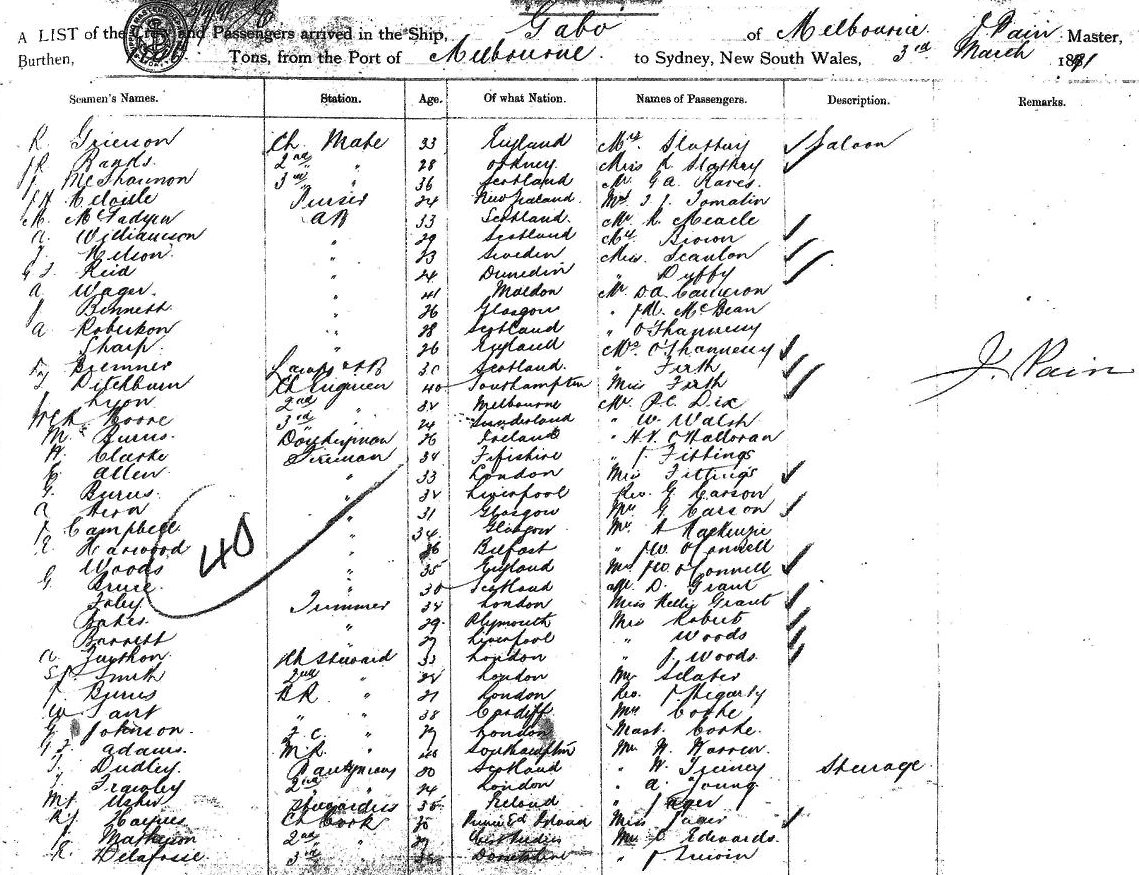 A LIST of the Crew and Passengers arrived in the Ship, Gabo of Melbourne J. Pain Master,
Burthen, Tons, from the Port of Melbourne to Sydney, New South Wales, 3rd March 1891
Seamen's Names. Station. Age. Of what Nation. Names of Passengers. Description. Remarks.
R. Grierson Ch Mate 33 England Mrs. Slattery Saloon
J R Banks 2nd " 28 Orkney Miss Slattery
McShannon 3rd " 36 Scotland Mr G A
Melville Purser 24 New Zealand Tomalin
M. McFadyen AB 33 Scotland Mr. R.
A. Williamson " 29 Scotland Mrs Brown
Nelson " 23 Sweden Miss Scanlon
G J Reid " 24 Dunedin " Duffy
A Wager " 41 Maldon Mr D.A. Cameron
J Bennett " 26 Glasgow " McBean
A. Robertson " 28 Scotland " O'Shannessy
Sharp " 26 England Mrs O'Shannessy
Bremner Lamps & AB Scotland " Firth
Ditchburn Ch Engineer 40 Southampton Miss Firth
J Lyon 2nd " 32 Melbourne Mr P.C. Dix
Moore 3rd " 24 Sunderland " W. Walsh
M. Burns Donkeyman 26 Ireland " O'Halloran
Clarke Fireman 34 Fifeshire " Fittings
Allen " 33 London Miss Fittings
G. Burns " 32 Liverpool Rev. G Carson
A Hern " 31 Glasgow Mrs G Carson
Campbell " 34 Glasgow Mr A MacKenzie
Harwood " 36 Belfast " J W O'Connell
Woods " 35 England Mrs J W O'Connell
G. Bruce " 30 Scotland D. Grant
40
Foley Trimmer 34 London Miss Nellie Grant
" 29 Plymouth Miss Robert
Barrett " 27 Liverpool " Woods
A. Ch Steward 33 London " J. Woods
Smith 2nd " London
Burns B.R. " 21 London Rev. Hegarty
W Tant " " 38 Cardiff
G Johnson 2 C. " 29 London Mast.
G J Adams " 40 Southampton Mr W. Warren
J. Dudley Pantryman Scotland " W. Steerage
Frawley 2nd " 24 London " A. Young
Stewardess 35 Ireland " Jager
Haynes Ch Cook Prince Ed Island Miss Jager
Matheson 2nd " West Indies Edwards
Delafosse 3rd " Dorsetshire " J Irwin
J. Pain